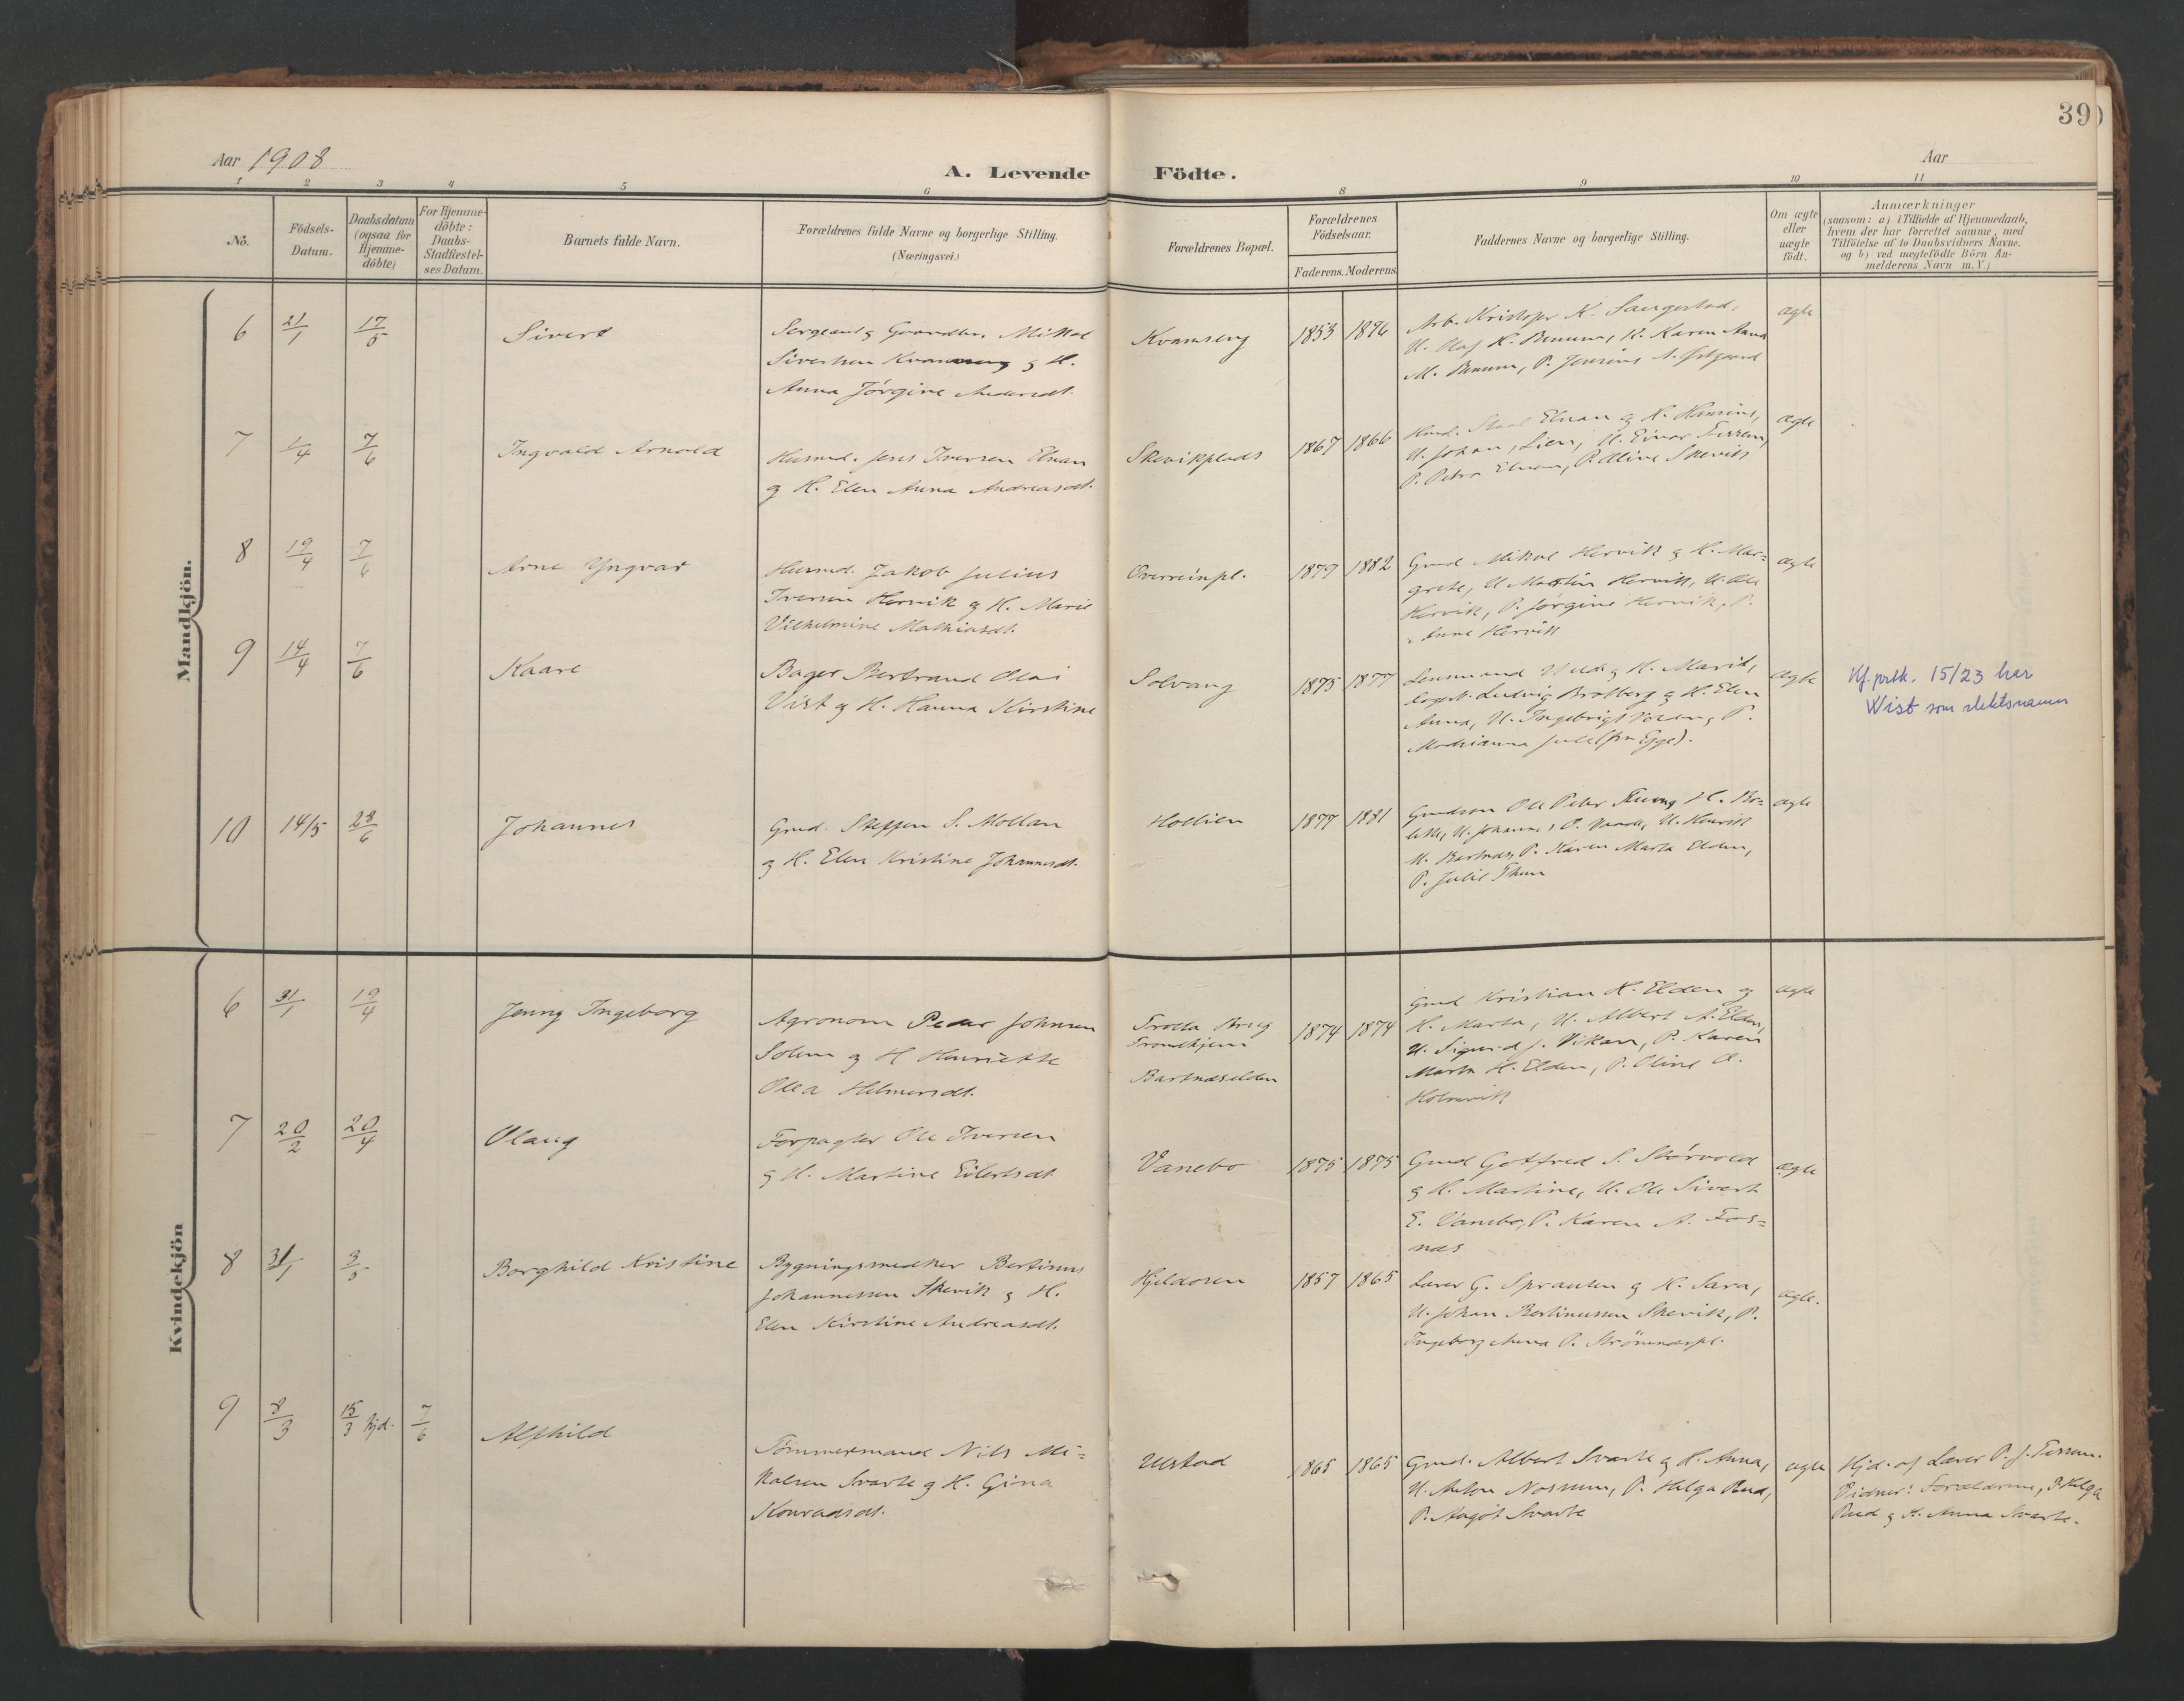 39
Aar 1908
A. Levende Födte.
Aar
1 2 3 4 5 6 8 9 10 11
No.
Födsels-
Datum.
Daabsdatum
(ogsaa for
Hjemme-
döbte)
For Hjemme-
döbte:
Daabs-
Stadfæstel-
ses Datum.
Barnets fulde Navn.
Forældrenes fulde Navne og borgerlige Stilling.
(Næringsvei.)
Forældrenes Bopæl.
Forældrenes
Födselsaar.
Faderens. Moderens.
Faddernes Navne og borgerlige Stilling.
Om ægte
eller
uægte
födt.
Anmærkninger
(saasom: a) i Tilfælde af Hjemmedaab,
hvem der har forrettet samme, med
Tilföielse af to Daabsvidners Navne.
og b) ved uægtefödte Börn An-
melderens Navn m. V.)
Mandkjön.
6 21/1 17/5 Sivert
Sergeant g Gaardbr. Mikal
Sivertsen Kvamseng g H.
Anna Jörgine Andersdt.
Kvamseng 1853 1876
Arb. Kristofer K. Saugestad,
U. Olaf K. Bruum, K. Karen Anna
M. Bruum, P. Jensine A. Östgaard
ægte
7 1/4 7/6 Ingvald Arnold
Husmd. Jens Iversen Elnan
g H. Elen Anna Andreasdt.
Skevikplads 1867 1866
Elnan og H. Hansine,
U. Johan Lien, U. Einar Tessem,
P. Petra Elnan, P. Oline Skevik
ægte
8 19/4 7/6 Arne Yngvar
Husmd. Jakob Julius
Iversen Hervik g H. Marie
Vilhelmine Mathiasdt.
Overreinpl. 1879 1882
Gmd Mikal Hervik g H. Mar=
grete, U Martin Hervik, U. Ole
Hervik, P. Jörgine Hervik, P.
Anne Hervik
ægte
9 14/4 7/6 Kaare
Bager Bertrand Olai
Vist g H. Hanna Kirstine
Solvang 1875 1877
Lensmand g H. Marit,
Ludvig Bratberg g H. Elen
Anna, U. Ingebrigt P.
Juul (fra Egge).
ægte
Kf. prtk. 15/23 har
Wist som slektsnavn
10 14/5 28/6 Johannes
Gmd. Steffen S. Mollan
g H. Elen Kristine Johannesdt.
Hollien 1877 1881
Gmdsøn Ole Peter H. Bo=
lette, U. Johannes P. U. Henrik
U. Bartnes, P. Karen Marta Elden,
P. Julie Thun
ægte
Kvindekjön
6 31/1 19/4 Jenny Ingeborg
Agronom Peder Johnsen
Solem g H Henriette
Olea Helmersdt.
Trolla Brug
Trondhjem
Bartnæselden
1874 1874
Gmd Kristian H. Elden g
H. Marta, U. Albert A. Elden,
U. Sigurd J. Vikan, P. Karen
Marta H. Elden, P. Oline O.
Holmvik
ægte
7 20/2 20/4 Olaug
Forpagter Ole Iversen
g H. Martine Eilertsdt.
Vanebo 1875 1875
Gmd Gotfred S. Störvold
g H. Martine, U. Ole Sivert
E. Vanebo, P. Karen A. Fos=
næs
ægte
8 31/1 3/5 Borghild Kristine
Bygningssnedker Bertinus
Johannessen Skevik g H.
Elen Kirstine Andreasdt.
Kjeldosen 1857 1865
Lærer G. Sprauten g H. Sara,
U. Johan Bertinussen Skevik, P.
Ingeborg Anna O. Strömnæspl.
ægte.
9 8/3 15/3 hjd. 7/6 Alfhild
Tömmermand Nils Mi=
kalsen Svarte g H. Gina
Konradsdt.
Ulstad 1865 1865
Gmd. Albert Svarte g H. Anna,
U. Anton Nossum, P. Helga Rud,
P. Aagöt Svarte
ægte
Hjd. af Lærer P. J. Tessem.
Vidner: Forældrene, P. Helga
Rud g H. Anna Svarte.